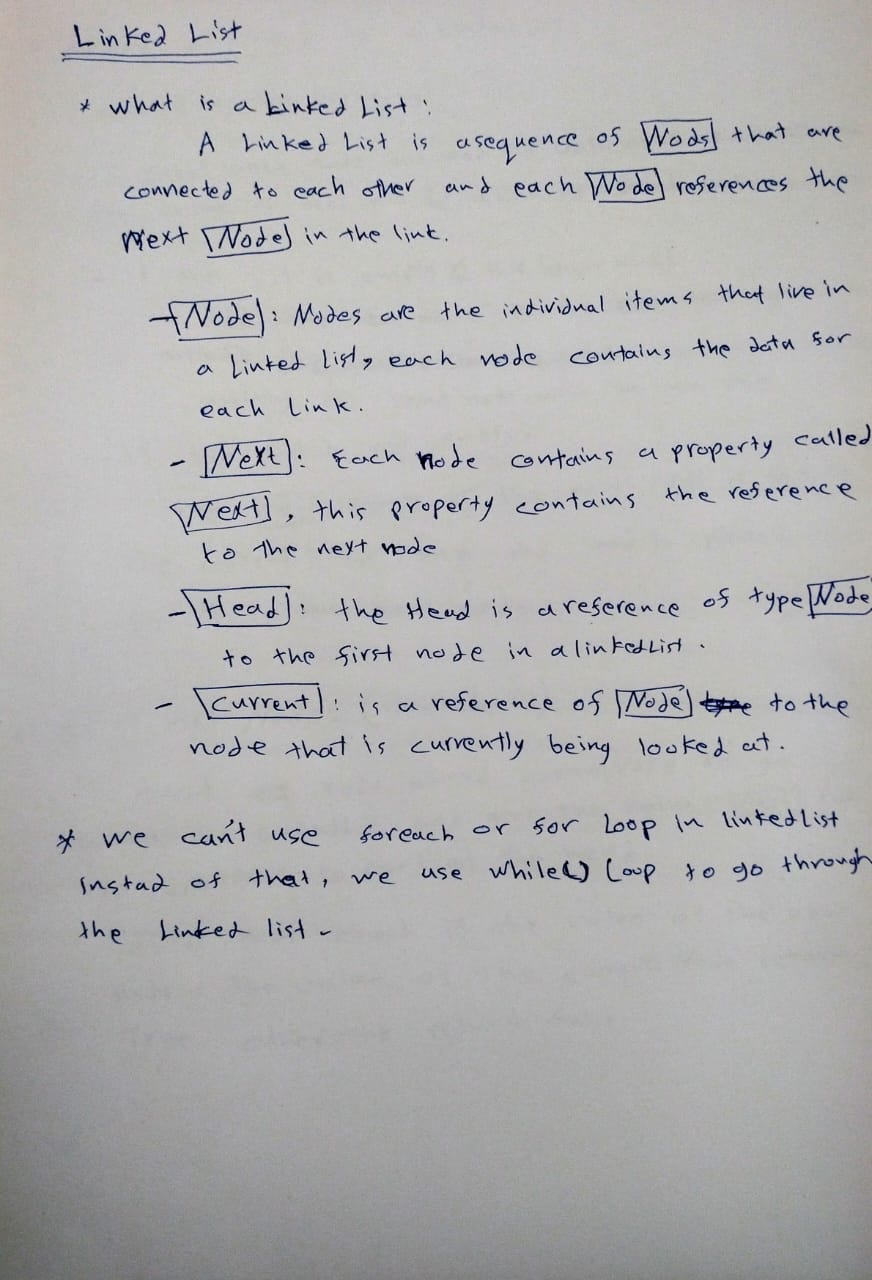 Linked List
* what is a Linked List :
A Linked List is a sequence of Nods that are
connected to each other and each Node references the
next Node in the link.
- Node : Nodes are the individual items that live in
a Linked list, each node contains the data for
each Link.
- Next : Each node contains a property called
Next , this property contains the reference
to the next node
- Head : the Head is a reference of type Node
to the first node in a linkedList .
- Current : is a reference of Node to the
node that is currently being looked at .
* we can't use foreach or for Loop in linkedlist
instad of that , we use while() Loop to go through
the Linked list -